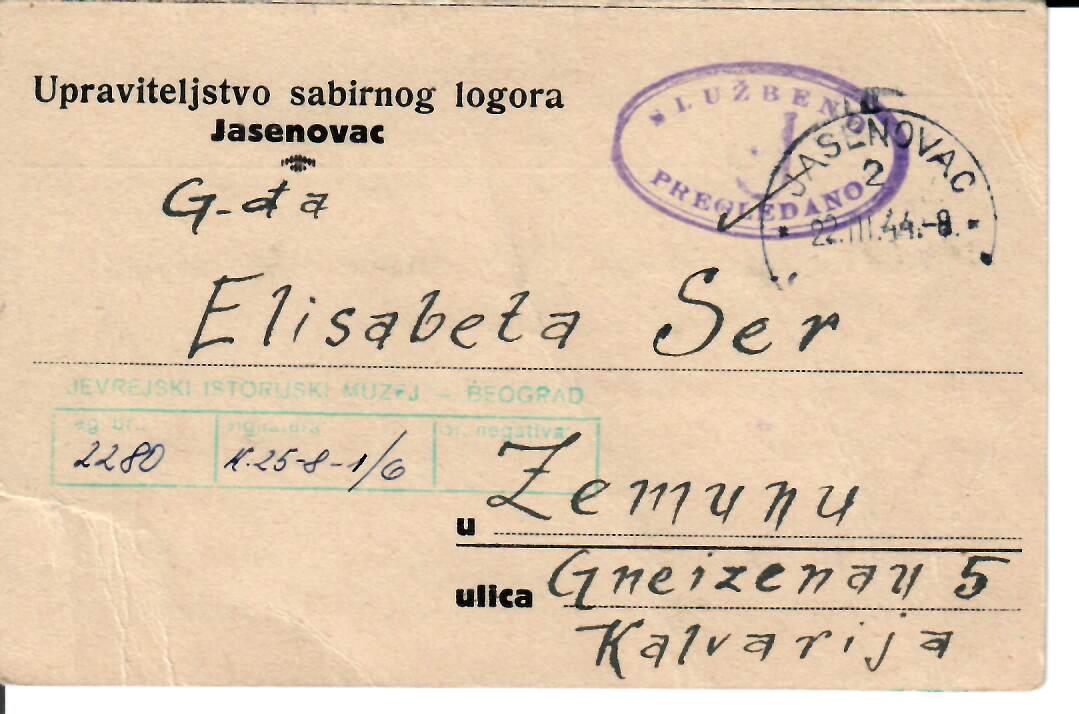 Upraviteljstvo sabirnog logora
Jasenovac
SLUŽBENO
PREGLEDANO
JASENOVAC
2
22.III.44.-8.
G-đa
Elisabeta Ser
JEVREJSKI ISTORIJSKI MUZEJ - BEOGRAD
eg. br.: signatura br. negativa:
2280 K.25-8-1/6
u Zemunu
ulica Gneizenau 5
Kalvarija